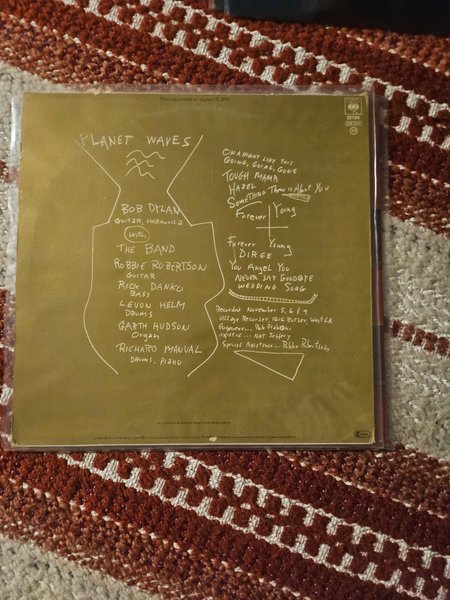 PLANET WAVES
BOB DYLAN
GUITAR, HARMONICA
With
THE BAND
ROBBIE ROBERTSON
GUITAR
RICK DANKO
BASS
LEVON HELM
DRUMS
GARTH HUDSON
Organ
RICHARD MANUAL
DRUMS, PIANO
CBS
ON A NIGHT LIKE THIS
GOING, GOING, GONE
TOUGH MAMA
HAZEL
SOMETHING There is About You
Forever Young
Forever Young
DIRGE
You Angel You
NEVER SAY GOODBYE
WEDDING SONG
Recorded November 5, 6 & 9
Village Recorder, 1616 Butler, West LA
Engineer... Rob
Special Assistance... Robbie Robertson